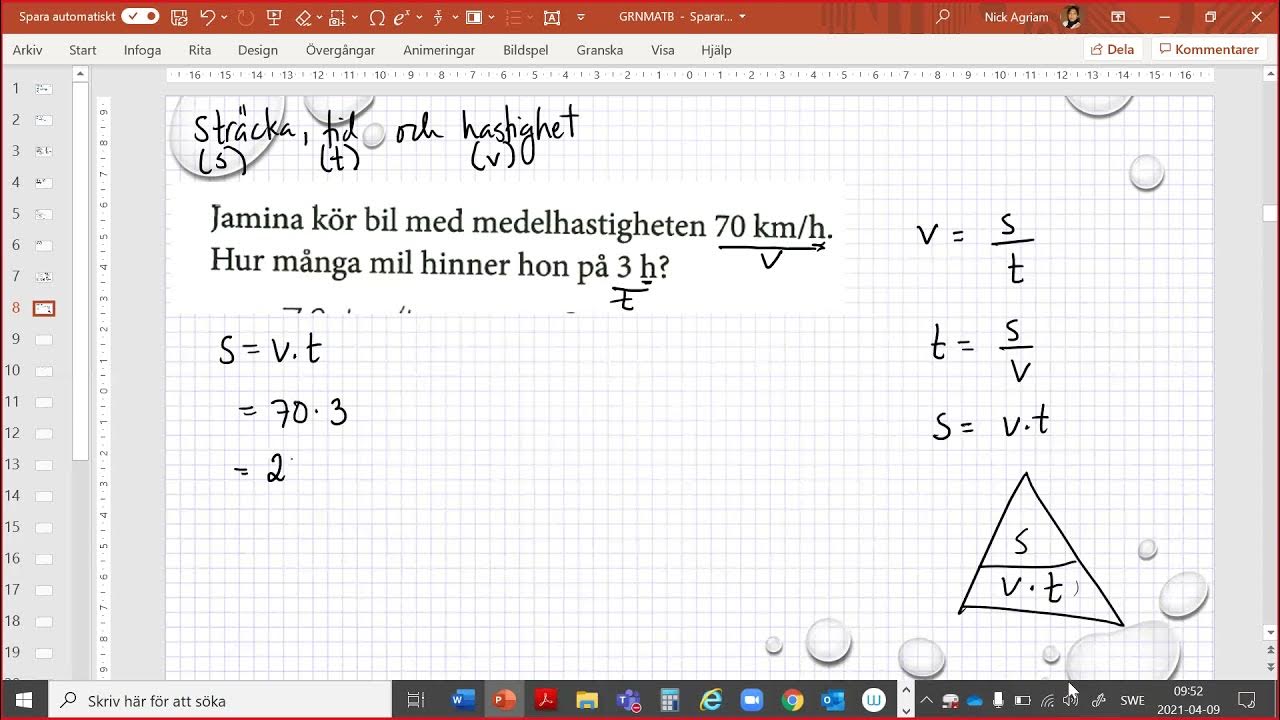 Spara automatiskt
GRNMATB - Sparar...
Nick Agriam
Arkiv Start Infoga Rita Design Övergångar Animeringar Bildspel Granska Visa Hjälp Dela Kommentarer
16 15 14 13 12 11 10 9 8 7 6 5 4 3 2 1 0 1 2 3 4 5 6 7 8 9 10 11 12 13 14 15 16
1
2
3
4
5
6
7
8
9
10
11
12
13
14
15
16
17
18
19
sträcka, tid och hastighet
(s) (t) (v)
Jamina kör bil med medelhastigheten 70 km/h.
v
Hur många mil hinner hon på 3 h?
t
s = v·t
= 70·3
= 2
v = s/t
t = s/v
s = v·t
s
v·t
Skriv här för att söka
SWE
09:52
2021-04-09